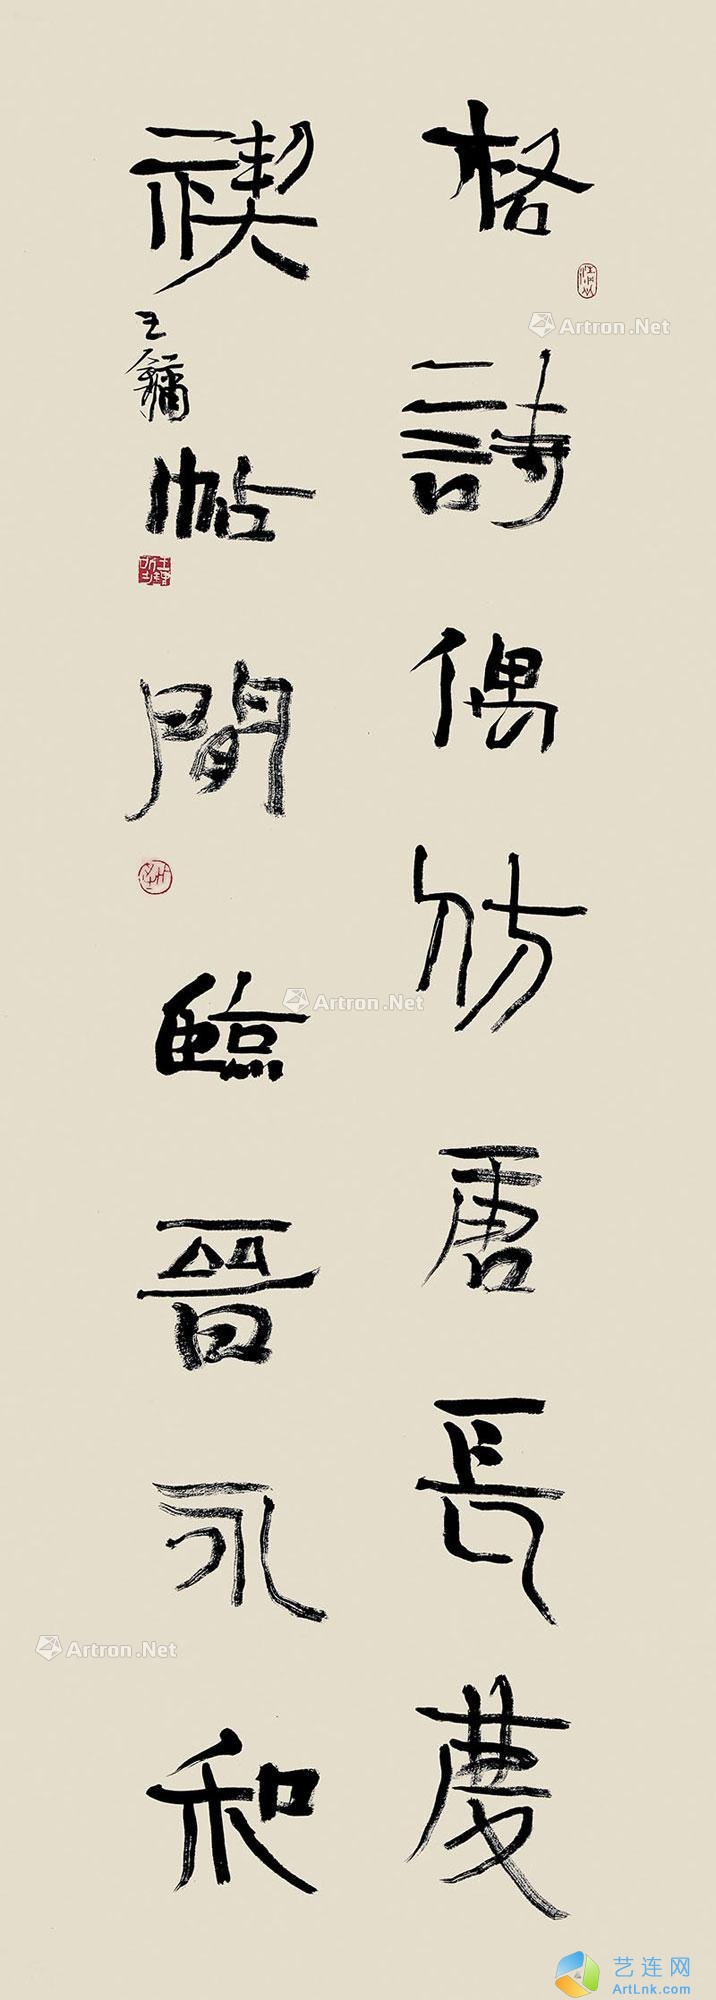 格詩偶仿唐長慶
禊帖閒臨晉永和
王鏞
Artron.Net
Artron.Net
Artron.Net
艺连网
ArtLnk.com